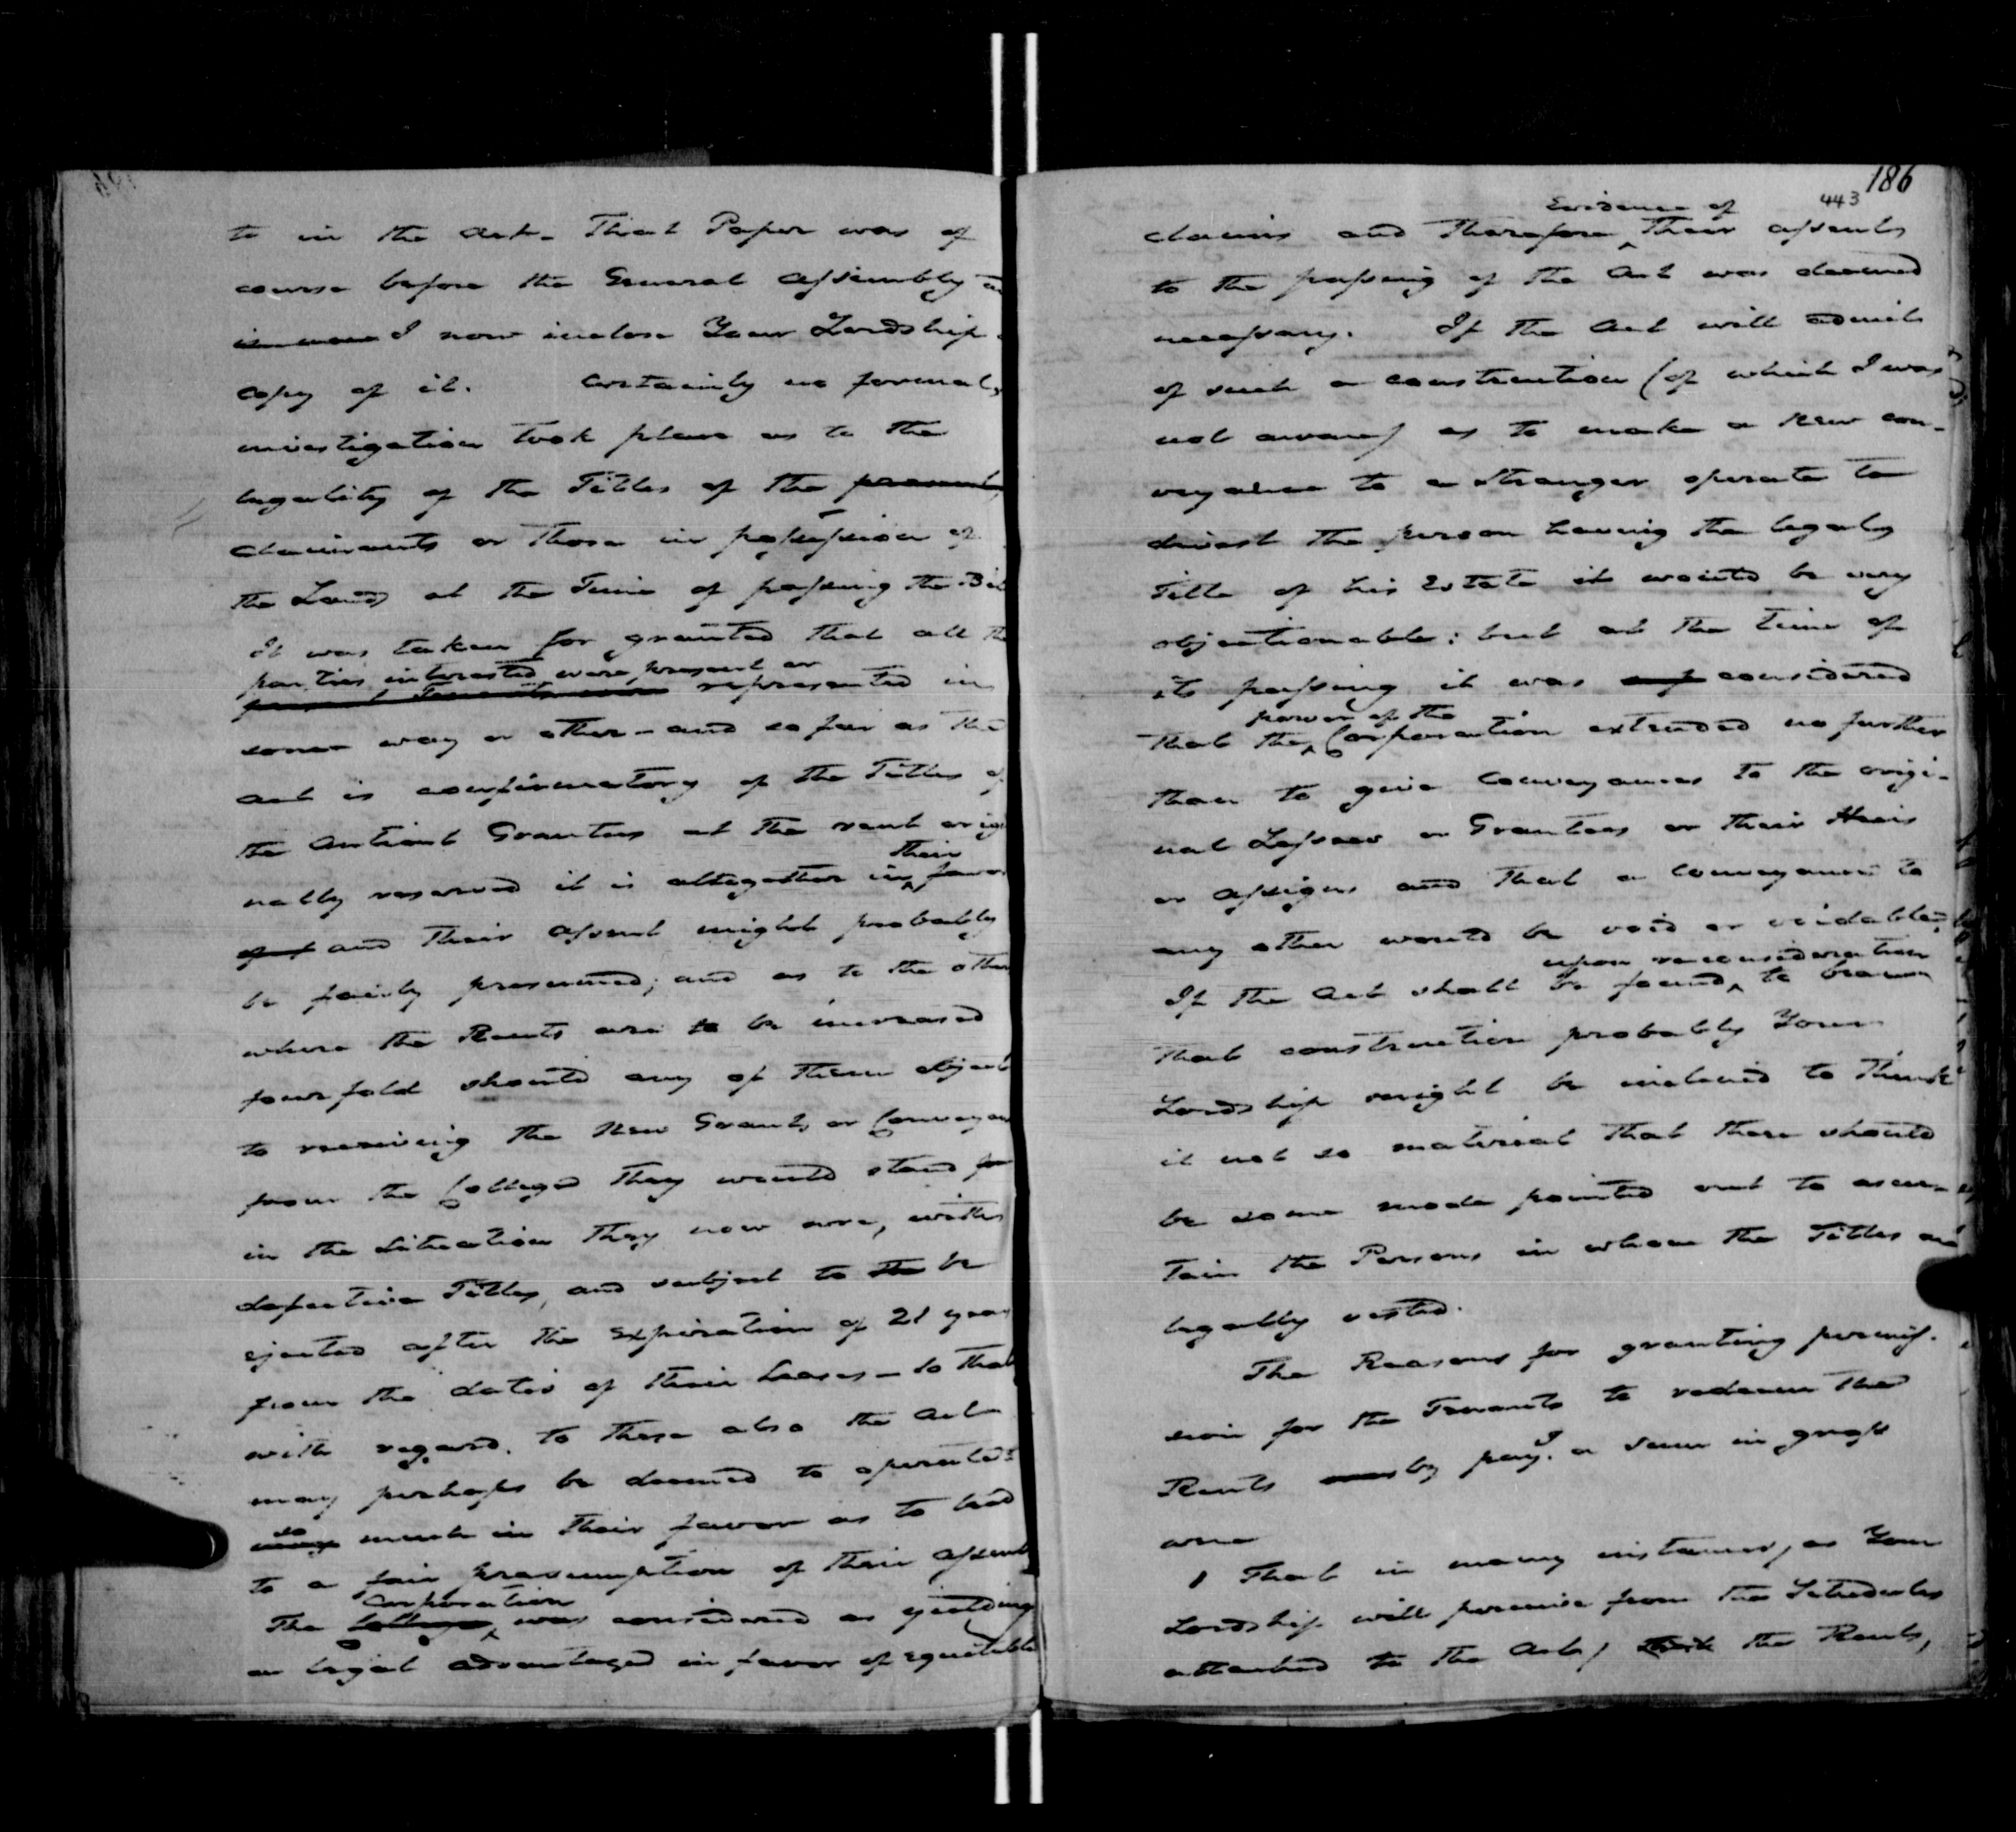 to in the Act. That Paper was of
course before the General Assembly
I now inclose Your Lordship
copy of it. Certainly no formal
investigation took place as to the
legality of the Titles of the present
claimants or those in possession of
the Lands at the Time of passing the Bil
It was taken for granted that all the
parties interested were present or
represented in
some way or other - and so far as the
Act is confirmatory of the Titles of
the Antient Grantees at the rent origi
their
nally reserved it is altogether in favor
and their assent might probably
be fairly presumed; and as to the other
where the Rents are to be increased
fourfold should any of them object
to receiving the New Grants or Conveyan
from the College they would stand
in the situation they now are, with
defective Titles, and subject to the be
ejected after the expiration of 21 years
from the dates of their Leases - So that
with regard to these also the Act
may perhaps be deemed to operate
so
much in their favor as to lead
to a fair presumption of their assent
Corporation
The College was considered as yielding
a legal advantage in favor of equitable
186
443
Evidence of
claims and therefore their assents
to the passing of the Act was deemed
necessary. If the Act will admit
of such a construction (of which I was
not aware) as to make a new con-
veyance to a stranger operate to
divest the person having the legal
Title of his Estate it would be very
objectionable: but at the time of
its passing it was considered
power of the
that the Corporation extended no further
than to give Conveyances to the origi-
nal Lessees or Grantees or their Heirs
or assigns and that a Conveyance to
any other would be void or voidable.
upon reconsideration
If the Act shall be found to bear
that construction probably Your
Lordship might be inclined to think
it not so material that there should
be some mode pointed out to ascer-
tain the Persons in whom the Titles are
legally vested.
The Reasons for granting permis-
sion for the Tenants to redeem the
Rents by pay.g a sum in gross
were
1 That in many instances, as Your
Lordship will perceive from the Schedules
attached to the Act, the Rents,